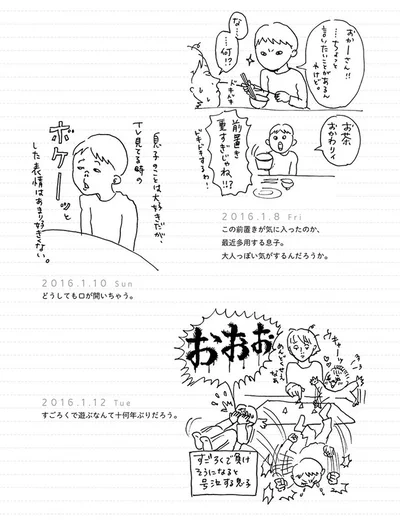 おかーさん!!
…ちょっと
言いたいことがあるん
やけど。
な…
…何!?
ドキドキ
お茶
おかわりィ
前置き
重すぎじゃね!!?
ドキドキするわ!
2016.1.8 Fri
この前置きが気に入ったのか、
最近多用する息子。
大人っぽい気がするんだろうか。
息子のことは大好きだが、
TV見てる時の
ボケーッと
した表情はあまり好きくない。
2016.1.10 Sun
どうしても口が開いちゃう。
おおぉ
すごろくで負け
そうになると
号泣する息子
2016.1.12 Tue
すごろくで遊ぶなんて十何年ぶりだろう。